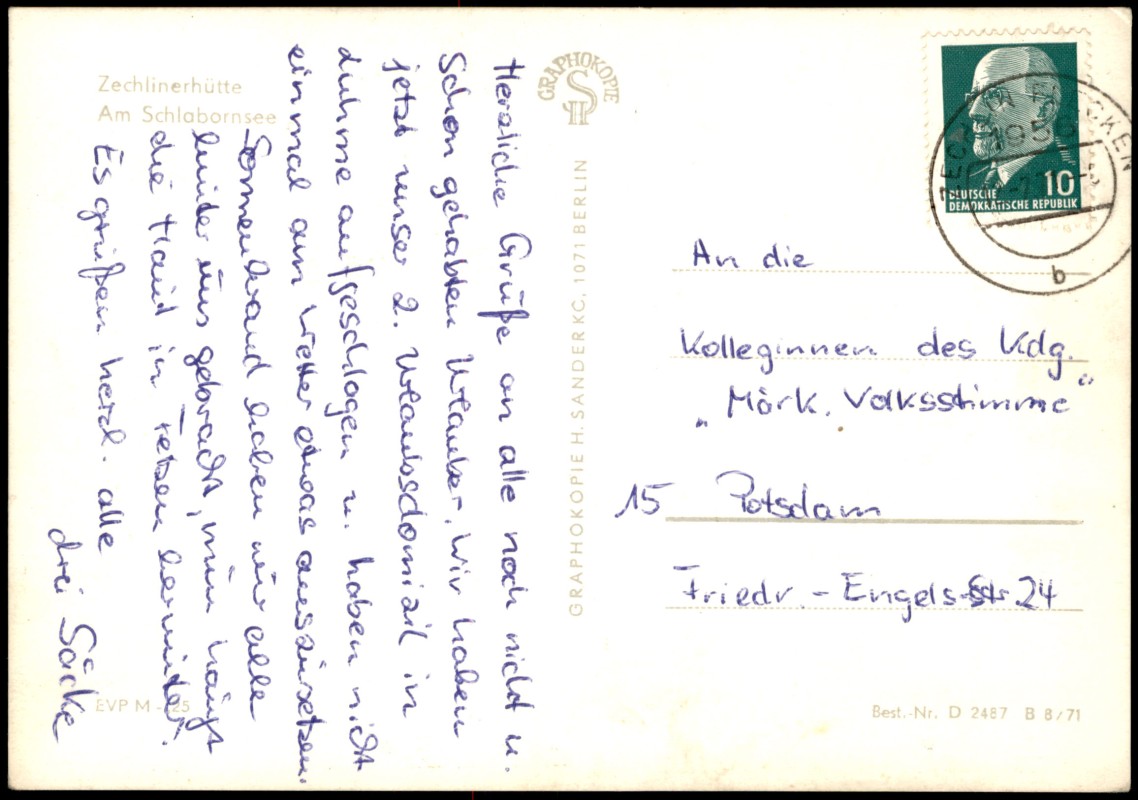 Zechlinerhütte
Am Schlabornsee
Herzliche Grüße an alle noch nicht u.
schon gehabten Urlauber. Wir haben
jetzt unser 2. Urlaubsdomizil in
aufgeschlagen u. haben nicht
einmal am Wetter etwas auszusetzen.
Sonnenbrand haben wir alle
hinter uns gebracht, nun hängt
die Haut in Fetzen herunter.
Es grüßen herzl. alle
drei Säcke
EVP M -,25
GRAPHOKOPIE
HS
GRAPHOKOPIE H. SANDER KG, 1071 BERLIN
DEUTSCHE
DEMOKRATISCHE REPUBLIK
10
ZECHLIN FLECKEN
1955
b
An die
Kolleginnen des Kdg.
„Märk. Volksstimme“
15 Potsdam
Friedr.-Engels-Str. 24
Best.-Nr. D 2487 B 8/71